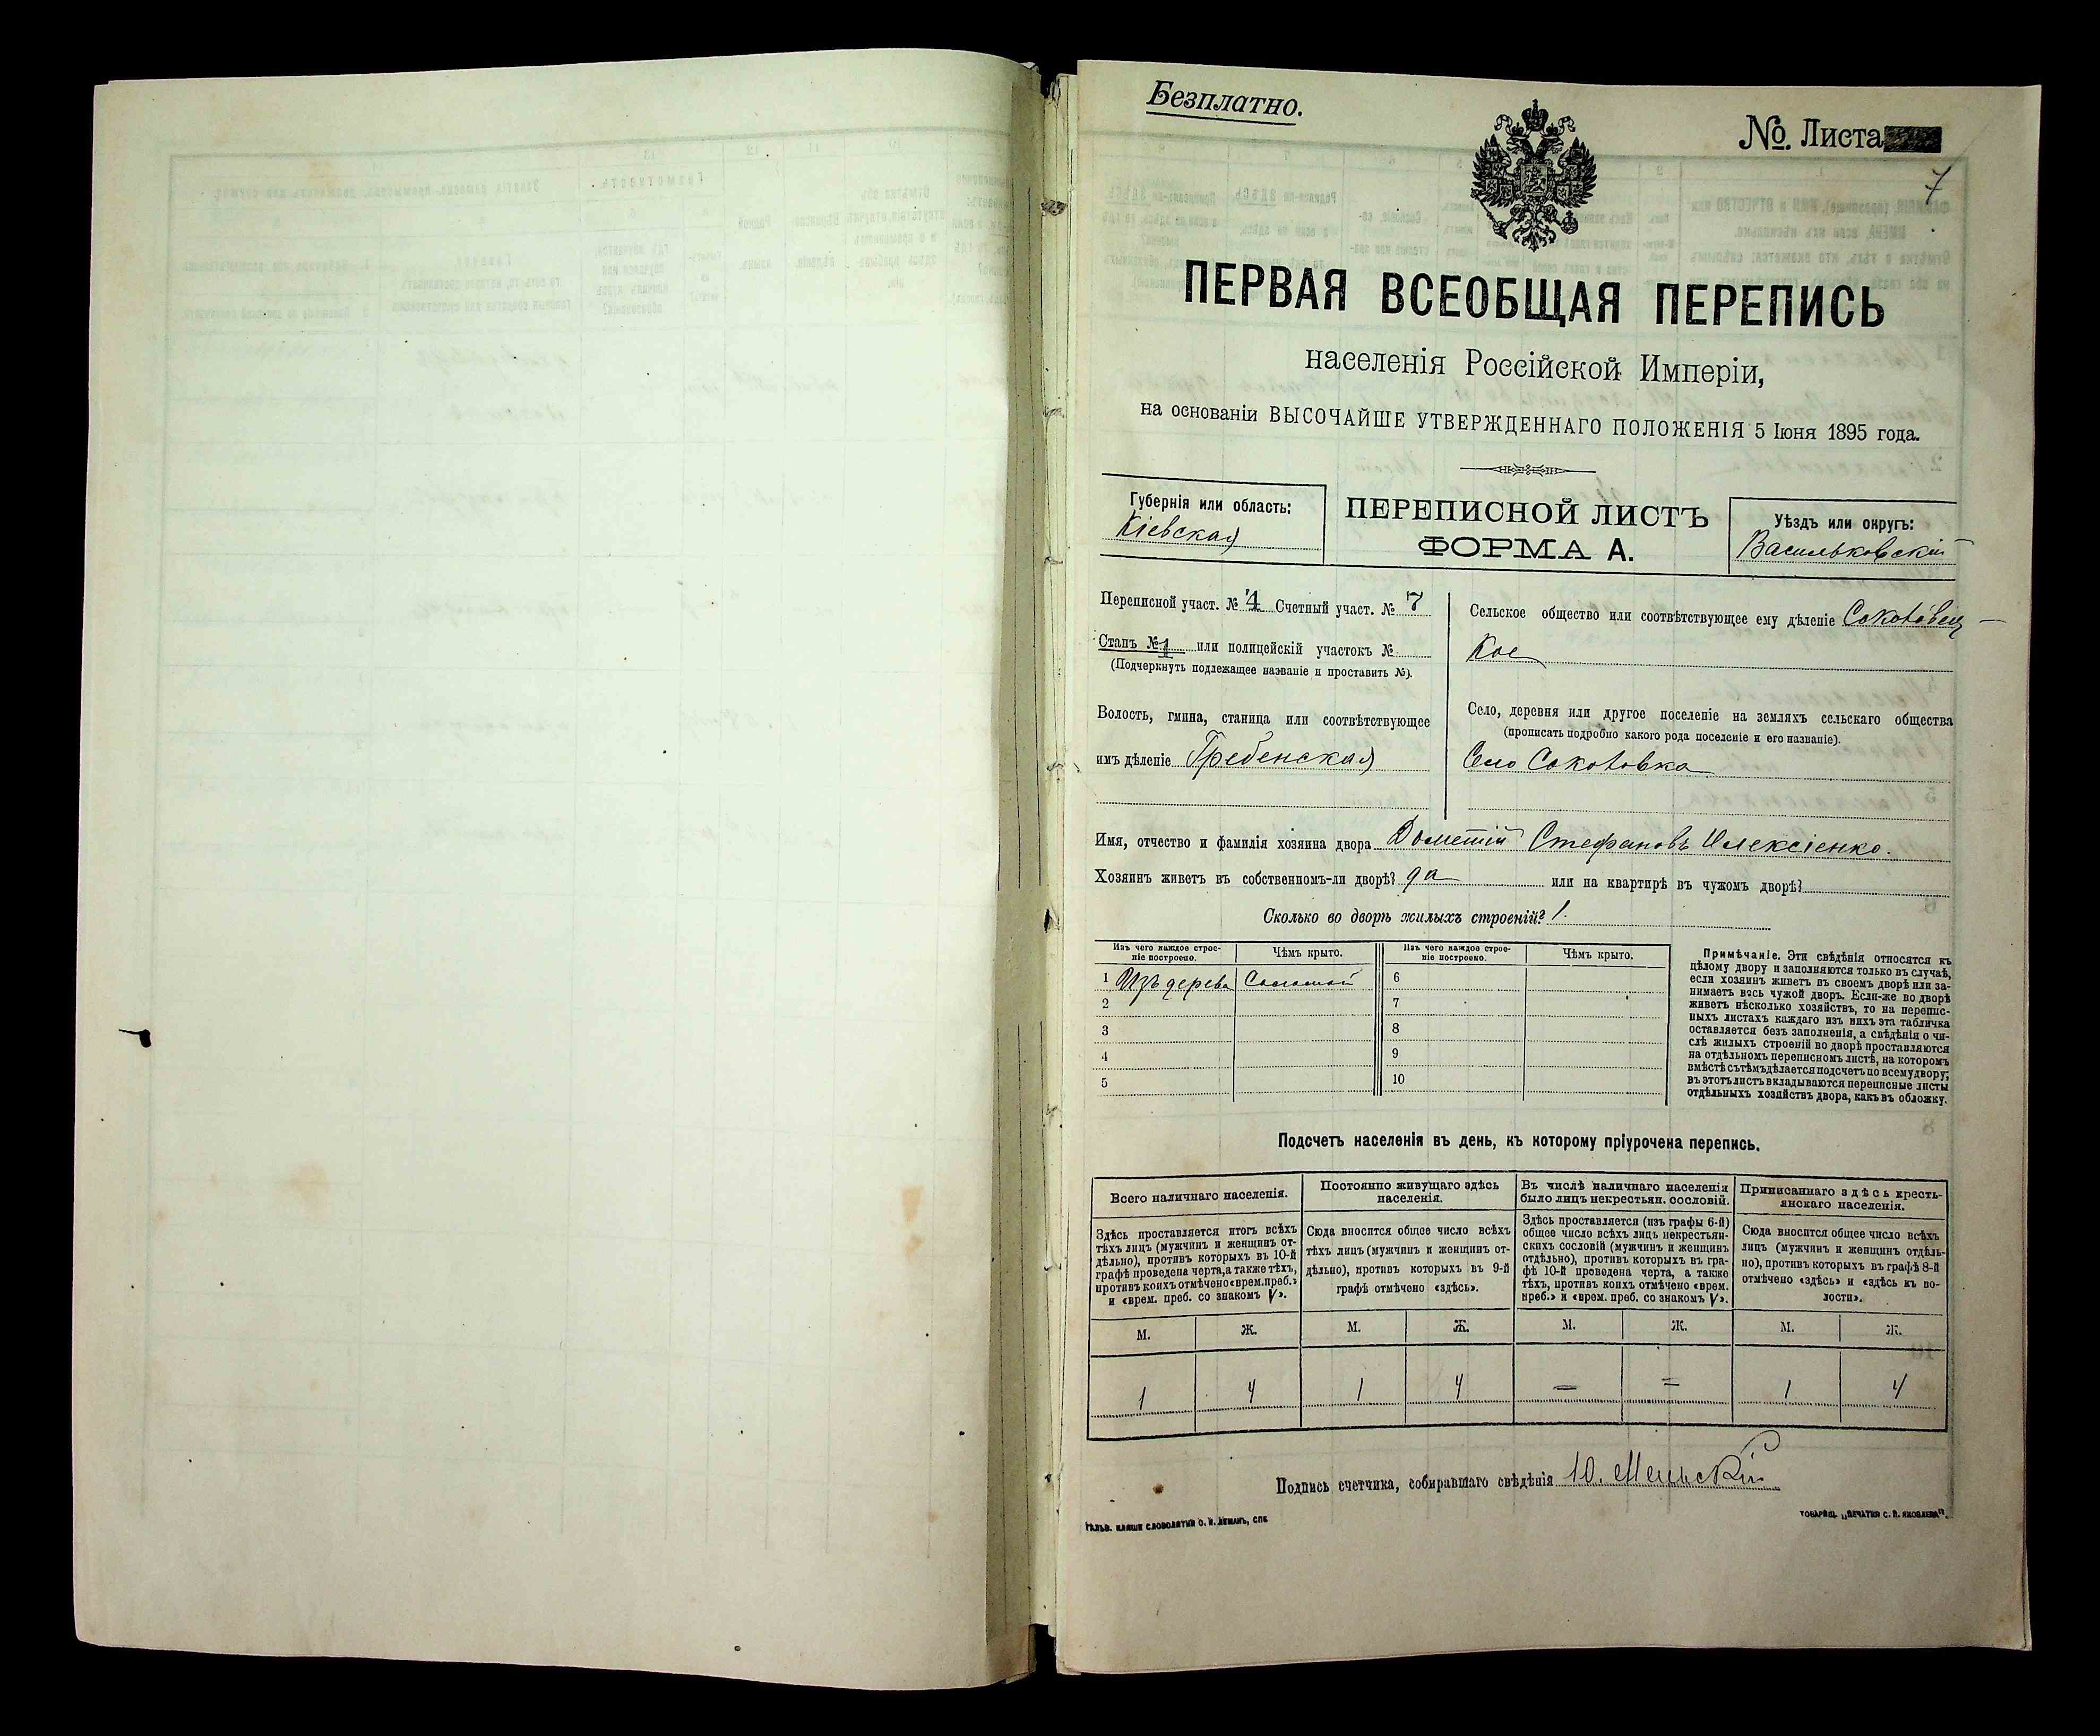 Безплатно.
№. Листа
7
ПЕРВАЯ ВСЕОБЩАЯ ПЕРЕПИСЬ
населенія Россійской Имперіи,
на основаніи ВЫСОЧАЙШЕ УТВЕРЖДЕННАГО ПОЛОЖЕНІЯ 5 Іюня 1895 года.
Губернія или область:
Кіевская
ПЕРЕПИСНОЙ ЛИСТЪ
ФОРМА А.
Уѣздъ или округъ:
Васильковскій
Переписной участ. № 4 Счетный участ. № 7
Станъ № 1 или полицейскій участокъ №
(Подчеркнуть подлежащее названіе и проставить №).
Волость, гмина, станица или соотвѣтствующее
имъ дѣленіе Гребенская
Сельское общество или соотвѣтствующее ему дѣленіе Соколовец-
кое
Село, деревня или другое поселеніе на земляхъ сельскаго общества
(прописать подробно какого рода поселеніе и его названіе).
Село Соколовка
Имя, отчество и фамилія хозяина двора Дометій Стефановъ Илексіенко.
Хозяинъ живетъ въ собственномъ-ли дворѣ? да или на квартирѣ въ чужомъ дворѣ?
Сколько во дворѣ жилыхъ строеній? 1.
Изъ чего каждое строе-
ніе построено.
Чѣмъ крыто.
Изъ чего каждое строе-
ніе построено.
Чѣмъ крыто.
1 Изъ дерева Соломой 6
2 7
3 8
4 9
5 10
Примѣчаніе. Эти свѣдѣнія относятся къ
цѣлому двору и заполняются только въ случаѣ,
если хозяинъ живетъ въ своемъ дворѣ или за-
нимаетъ весь чужой дворъ. Если-же во дворѣ
живетъ нѣсколько хозяйствъ, то на перепис-
ныхъ листахъ каждаго изъ нихъ эта табличка
оставляется безъ заполненія, а свѣдѣнія о чи-
слѣ жилыхъ строеній во дворѣ проставляются
на отдѣльномъ переписномъ листѣ, на которомъ
вмѣстѣ съ тѣмъ дѣлается подсчетъ по всему двору;
въ этотъ листъ вкладываются переписные листы
отдѣльныхъ хозяйствъ двора, какъ въ обложку.
Подсчетъ населенія въ день, къ которому пріурочена перепись.
Всего наличнаго населенія.
Здѣсь проставляется итогъ всѣхъ
тѣхъ лицъ (мужчинъ и женщинъ от-
дѣльно), противъ которыхъ въ 10-й
графѣ проведена черта, а также тѣхъ,
противъ коихъ отмѣчено «врем. преб.»
и «врем. преб. со знакомъ V».
Постоянно живущаго здѣсь
населенія.
Сюда вносится общее число всѣхъ
тѣхъ лицъ (мужчинъ и женщинъ от-
дѣльно), противъ которыхъ въ 9-й
графѣ отмѣчено «здѣсь».
Въ числѣ наличнаго населенія
было лицъ некрестьян. сословій.
Здѣсь проставляется (изъ графы 6-й)
общее число всѣхъ лицъ некрестьян-
скихъ сословій (мужчинъ и женщинъ
отдѣльно), противъ которыхъ въ гра-
фѣ 10-й проведена черта, а также
тѣхъ, противъ коихъ отмѣчено «врем.
преб.» и «врем. преб. со знакомъ V».
Приписаннаго здѣсь кресть-
янскаго населенія.
Сюда вносится общее число всѣхъ
лицъ (мужчинъ и женщинъ отдѣль-
но), противъ которыхъ въ графѣ 8-й
отмѣчено «здѣсь» и «здѣсь къ во-
лости».
М. Ж. М. Ж. М. Ж. М. Ж.
1 4 1 4 — = 1 4
Подпись счетчика, собиравшаго свѣдѣнія Ю.
СЛОВОЛИТНИ О. И. ЛЕМАНЪ, СПБ.
ТОВАРИЩ. „ПЕЧАТНЯ С. П. ЯКОВЛЕВА".